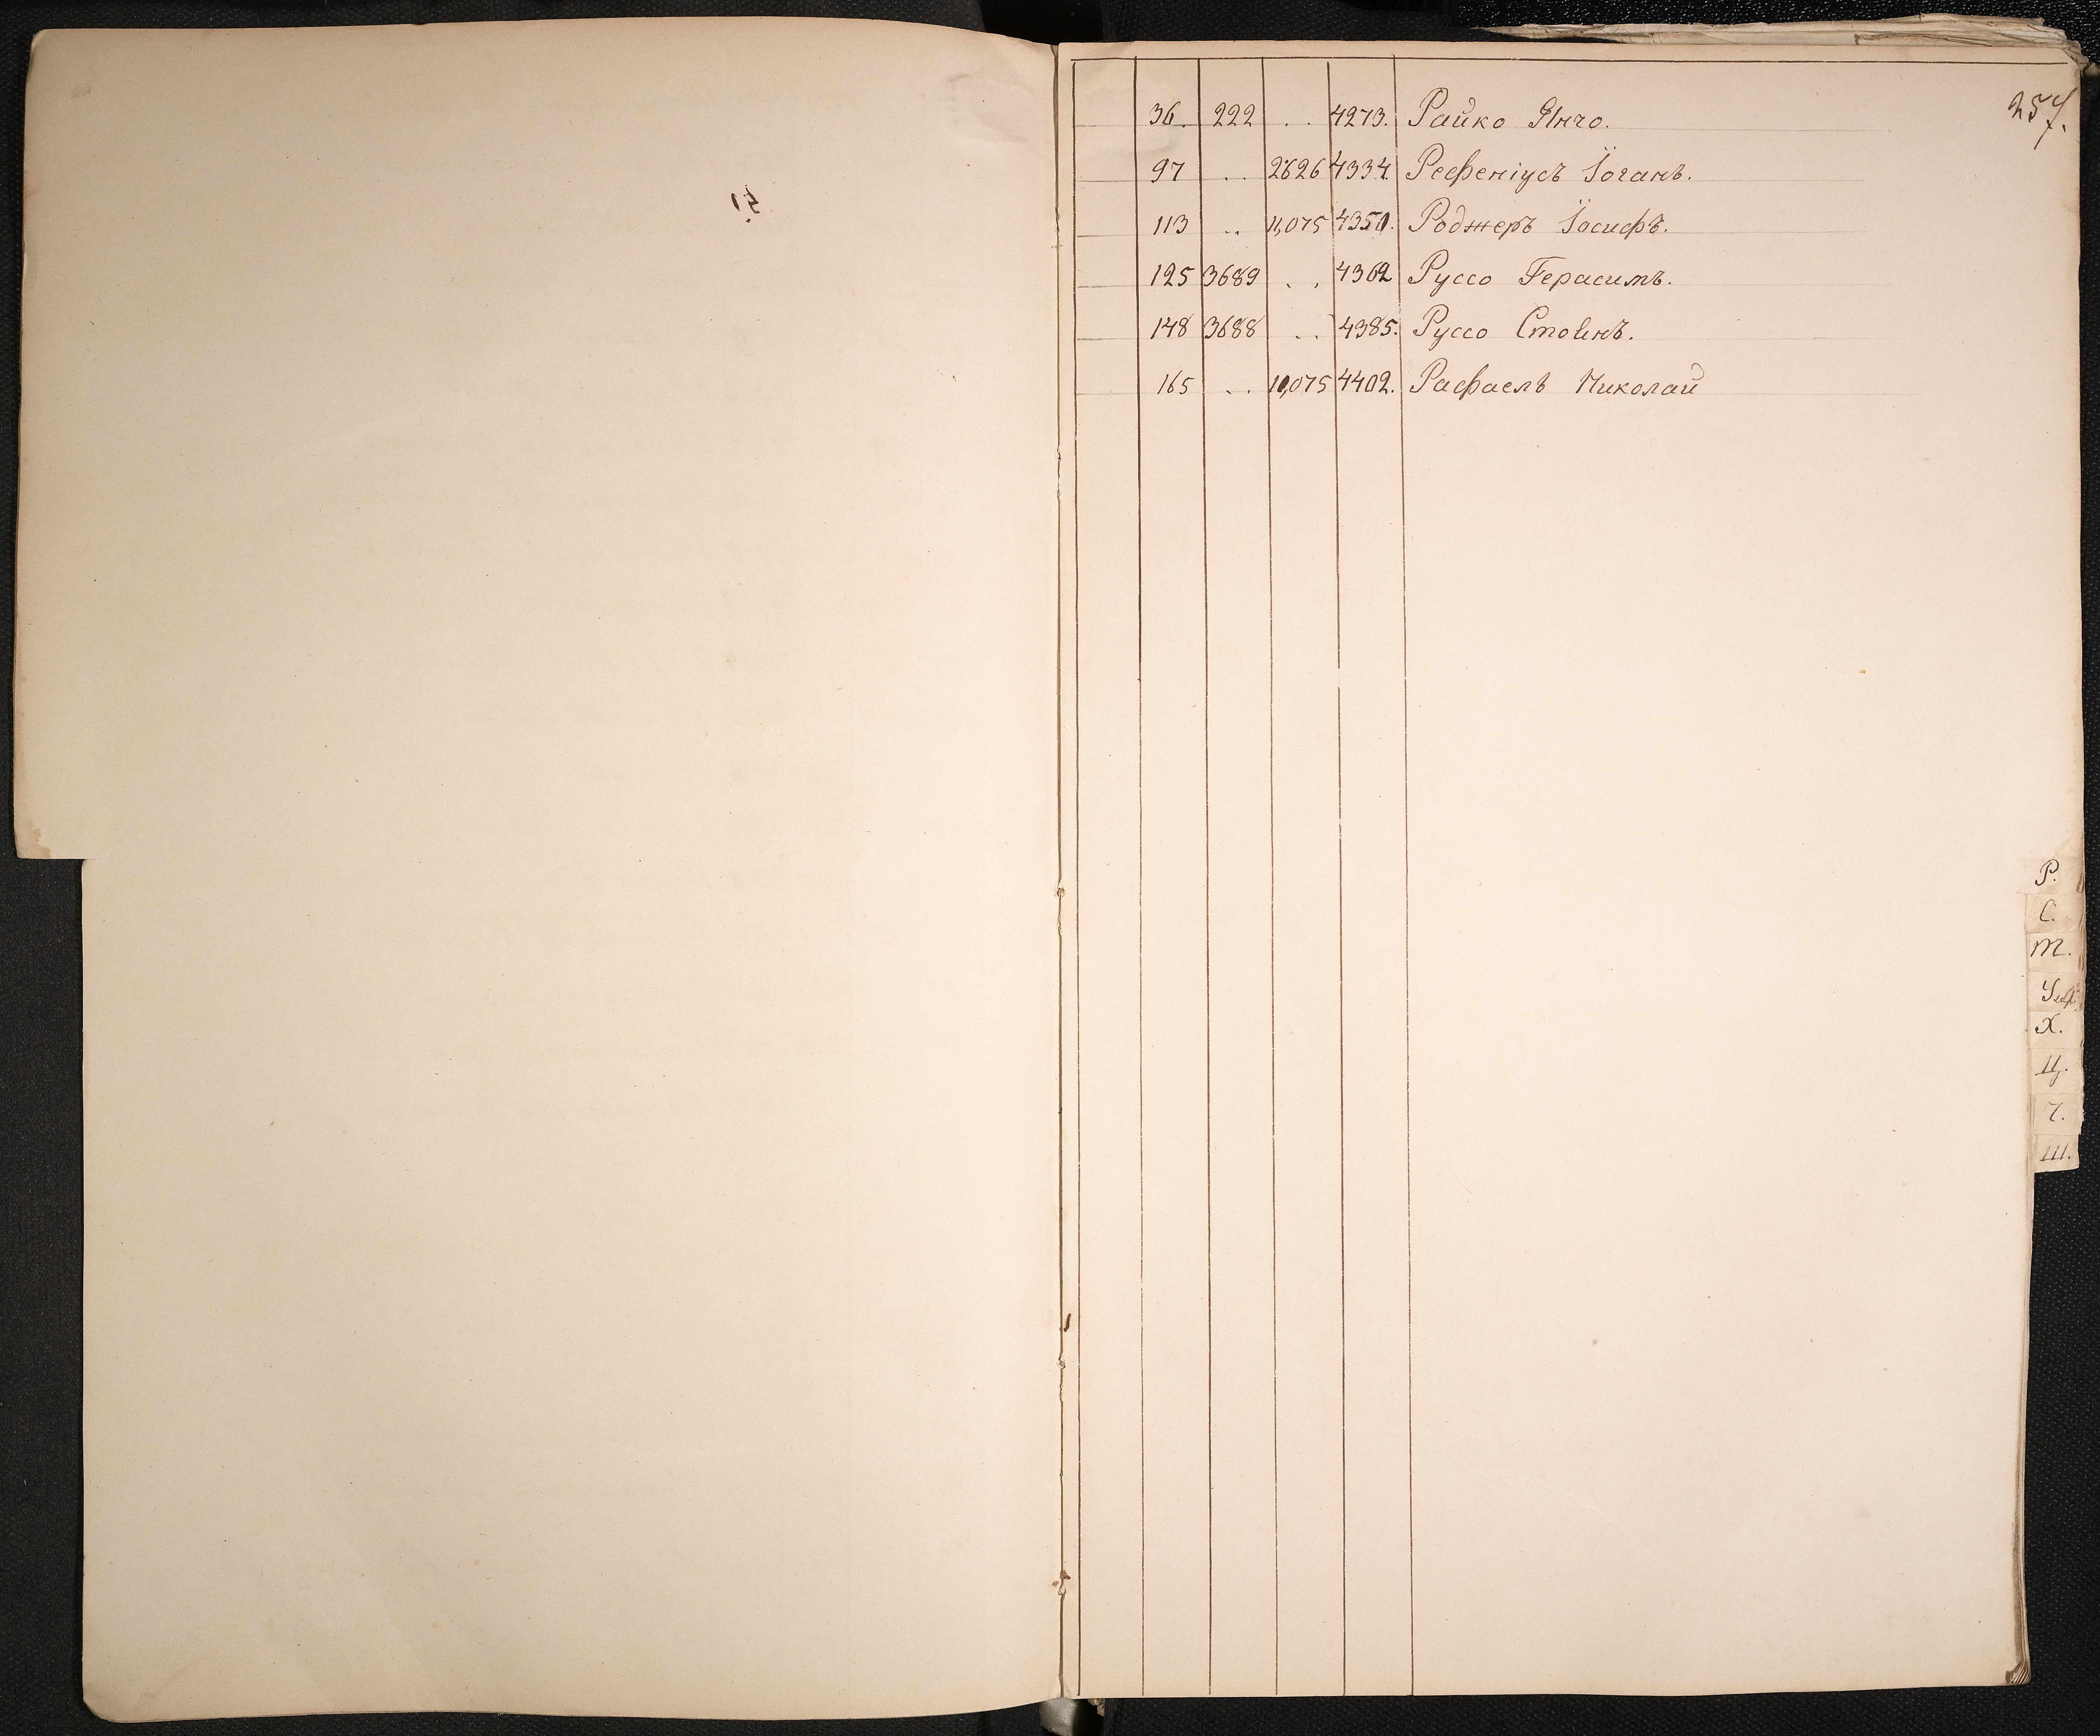 257.
36. 222 . . 4273. Райко Янчо.
97 . . 2626 4334. Рефеніусъ Іоганъ.
113 . . 11,075 4350. Роджеръ Іосифъ.
125 3689 . . 4362 Руссо Герасимъ.
148 3688 . . 4385. Руссо
165 . . 10,075 4402. Рафаелъ Николай
Р.
С.
Т.
Х.
Ц.
Ч.
Ш.